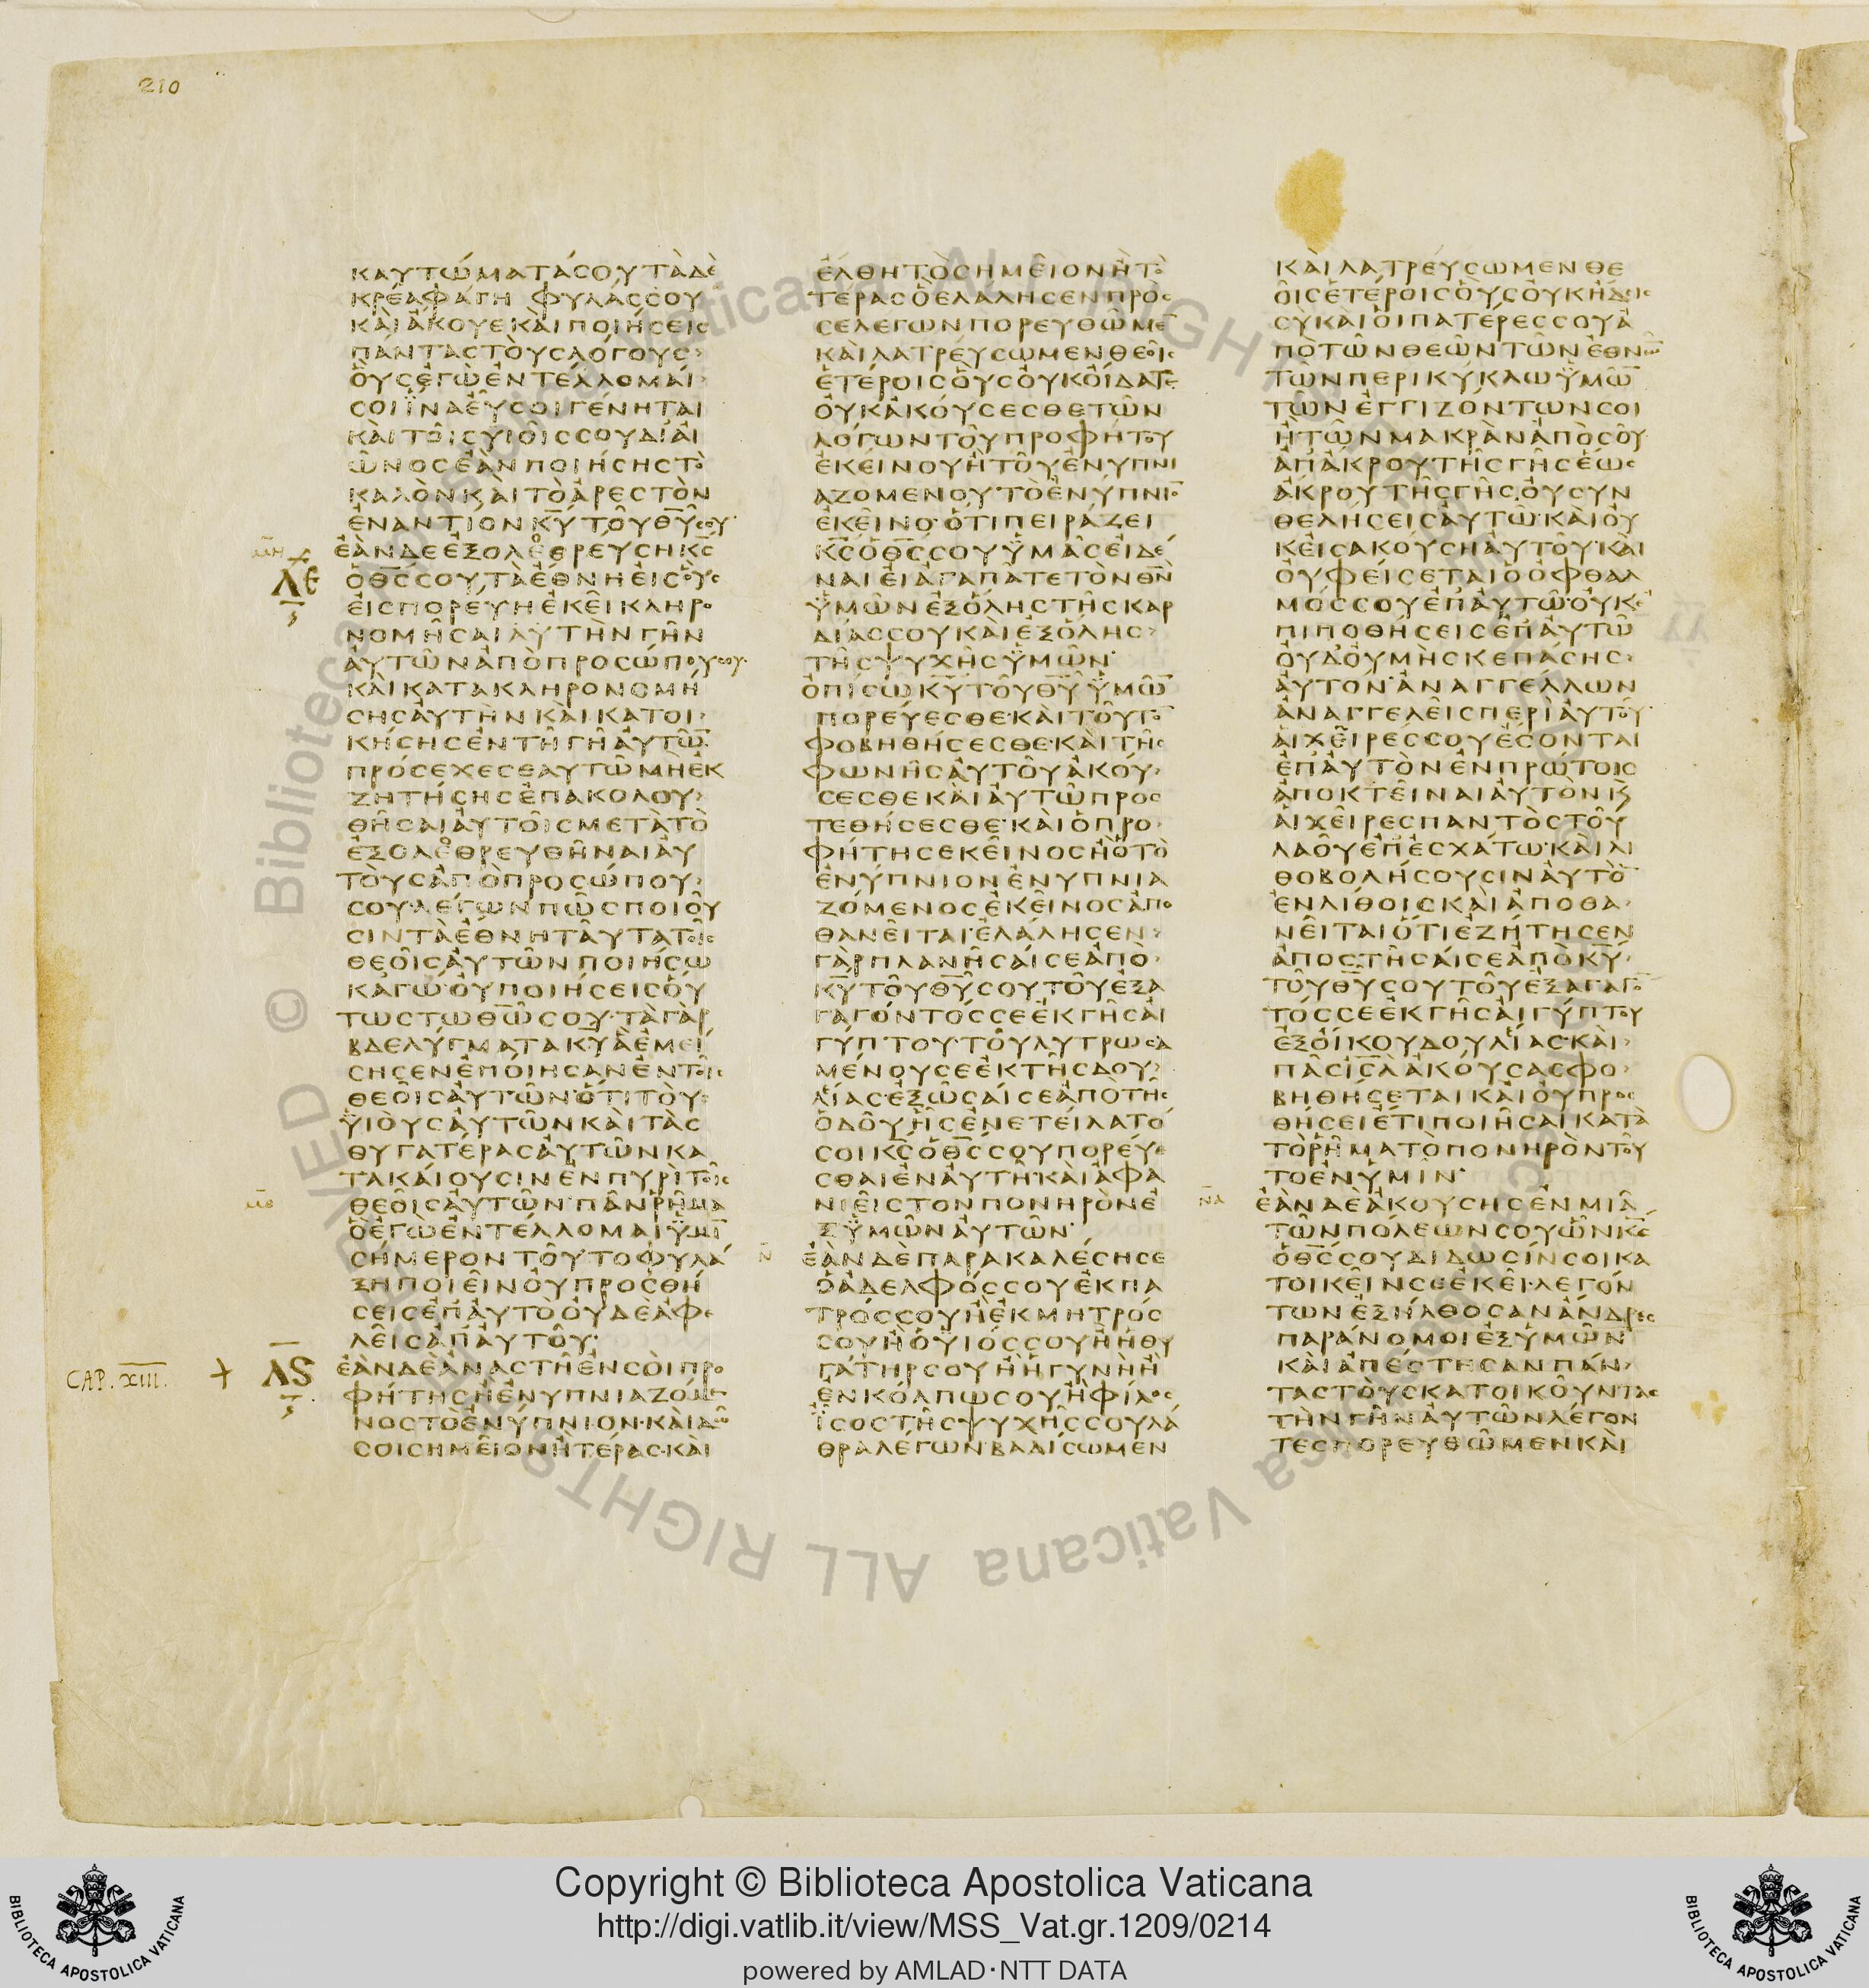 210
ΚΑΥΤΩΜΑΤΑΣΟΥΤΑΔΕ
ΚΡΕΑΦΑΓΗ ΦΥΛΑΣΣΟΥ
ΚΑΙΑΚΟΥΕΚΑΙΠΟΙΗΣΕΙΣ
ΠΑΝΤΑΣΤΟΥΣΛΟΓΟΥΣ
ΟΥΣΕΓΩΕΝΤΕΛΛΟΜΑΙ
ΣΟΙΪΝΑΕΥΣΟΙΓΕΝΗΤΑΙ
ΚΑΙΤΟΙΣΥΙΟΙΣΣΟΥΔΙΑΙ
ΩΝΟΣΕΑΝΠΟΙΗΣΗΣΤΟ
ΚΑΛΟΝΚΑΙΤΟΑΡΕΣΤΟΝ
ΕΝΑΝΤΙΟΝΚΥΤΟΥΘΥΣΟΥ
ΜΗ
ΕΑΝΔΕΕΞΟΛΕΘΡΕΥΣΗΚΣ
ΛΕ
ΟΘΣΣΟΥΤΑΕΘΝΗΕΙΣΟΥΣ
ΕΙΣΠΟΡΕΥΗΕΚΕΙΚΛΗΡΟ
ΝΟΜΗΣΑΙΑΥΤΗΝΓΗΝ
ΑΥΤΩΝΑΠΟΠΡΟΣΩΠΟΥΣΟΥ
ΚΑΙΚΑΤΑΚΛΗΡΟΝΟΜΗ
ΣΗΣΑΥΤΗΝΚΑΙΚΑΤΟΙ
ΚΗΣΗΣΕΝΤΗΓΗΑΥΤΩ
ΠΡΟΣΕΧΕΣΕΑΥΤΩΜΗΕΚ
ΖΗΤΗΣΗΣΕΠΑΚΟΛΟΥ
ΘΗΣΑΙΑΥΤΟΙΣΜΕΤΑΤΟ
ΕΞΟΛΕΘΡΕΥΘΗΝΑΙΑΥ
ΤΟΥΣΑΠΟΠΡΟΣΩΠΟΥ
ΣΟΥΛΕΓΩΝΠΩΣΠΟΙΟΥ
ΣΙΝΤΑΕΘΝΗΤΑΥΤΑΤΟΙΣ
ΘΕΟΙΣΑΥΤΩΝΠΟΙΗΣΩ
ΚΑΓΩ·ΟΥΠΟΙΗΣΕΙΣΟΥ
ΤΩΣΤΩΘΩΣΟΥ·ΤΑΓΑΡ
ΒΔΕΛΥΓΜΑΤΑΚΥΑΕΜΕΙ
ΣΗΣΕΝΕΠΟΙΗΣΑΝΕΝΤΟΙΣ
ΘΕΟΙΣΑΥΤΩΝ·ΟΤΙΤΟΥΣ
ΫΙΟΥΣΑΥΤΩΝΚΑΙΤΑΣ
ΘΥΓΑΤΕΡΑΣΑΥΤΩΝΚΑ
ΤΑΚΑΙΟΥΣΙΝΕΝΠΥΡΙΤΟΙΣ
ΜΘ
ΘΕΟΙΣΑΥΤΩΝ·ΠΑΝΡΗΜΑ
ΟΕΓΩΕΝΤΕΛΛΟΜΑΙΫΜΙ
ΣΗΜΕΡΟΝΤΟΥΤΟΦΥΛΑ
ΞΗΠΟΙΕΙΝΟΥΠΡΟΣΘΗ
ΣΕΙΣΕΠΑΥΤΟΟΥΔΕΑΦΕ
ΛΕΙΣΑΠΑΥΤΟΥ·
CAP. XIII.
ΛS
ΕΑΝΔΕΑΝΑΣΤΗΕΝΣΟΙΠΡΟ
ΦΗΤΗΣΗΕΝΥΠΝΙΑΖΟΜΕ
ΝΟΣΤΟΕΝΥΠΝΙΟΝ·ΚΑΙΔΩ
ΣΟΙΣΗΜΕΙΟΝΗΤΕΡΑΣ·ΚΑΙ
ΕΛΘΗΤΟΣΗΜΕΙΟΝΗΤΟ
ΤΕΡΑΣΟΕΛΑΛΗΣΕΝΠΡΟΣ
ΣΕΛΕΓΩΝΠΟΡΕΥΘΩΜΕ
ΚΑΙΛΑΤΡΕΥΣΩΜΕΝΘΕΟΙΣ
ΕΤΕΡΟΙΣΟΥΣΟΥΚΟΙΔΑΤΕ
ΟΥΚΑΚΟΥΣΕΣΘΕΤΩΝ
ΛΟΓΩΝΤΟΥΠΡΟΦΗΤΟΥ
ΕΚΕΙΝΟΥΗΤΟΥΕΝΥΠΝΙ
ΑΖΟΜΕΝΟΥΤΟΕΝΥΠΝΙΟ
ΕΚΕΙΝΟ·ΟΤΙΠΕΙΡΑΖΕΙ
ΚΣΟΘΣΣΟΥΫΜΑΣΕΙΔΕ
ΝΑΙΕΙΑΓΑΠΑΤΕΤΟΝΘΝ
ΫΜΩΝΕΞΟΛΗΣΤΗΣΚΑΡ
ΔΙΑΣΣΟΥΚΑΙΕΞΟΛΗΣ
ΤΗΣΨΥΧΗΣΫΜΩΝ·
ΟΠΙΣΩΚΥΤΟΥΘΥΫΜΩ
ΠΟΡΕΥΕΣΘΕ·ΚΑΙΤΟΥΤΟ
ΦΟΒΗΘΗΣΕΣΘΕ·ΚΑΙΤΗΣ
ΦΩΝΗΣΑΥΤΟΥΑΚΟΥ
ΣΕΣΘΕΚΑΙΑΥΤΩΠΡΟΣ
ΤΕΘΗΣΕΣΘΕ·ΚΑΙΟΠΡΟ
ΦΗΤΗΣΕΚΕΙΝΟΣΗΟΤΟ
ΕΝΥΠΝΙΟΝΕΝΥΠΝΙΑ
ΖΟΜΕΝΟΣΕΚΕΙΝΟΣΑΠΟ
ΘΑΝΕΙΤΑΙ·ΕΛΑΛΗΣΕΝ
ΓΑΡΠΛΑΝΗΣΑΙΣΕΑΠΟ
ΚΥΤΟΥΘΥΣΟΥΤΟΥΕΞΑ
ΓΑΓΟΝΤΟΣΣΕΕΚΓΗΣΑΙ
ΓΥΠΤΟΥ·ΤΟΥΛΥΤΡΩΣΑ
ΜΕΝΟΥΣΕΕΚΤΗΣΔΟΥ
ΛΕΙΑΣ·ΕΞΩΣΑΙΣΕΑΠΟΤΗΣ
ΟΔΟΥΗΣΕΝΕΤΕΙΛΑΤΟ
ΣΟΙΚΣΟΘΣΣΟΥΠΟΡΕΥΕ
ΣΘΑΙΕΝΑΥΤΗ·ΚΑΙΑΦΑ
ΝΙΕΙΣΤΟΝΠΟΝΗΡΟΝΕ
ΞΫΜΩΝΑΥΤΩΝ·
Ν
ΕΑΝΔΕΠΑΡΑΚΑΛΕΣΗΣΕ
ΟΑΔΕΛΦΟΣΣΟΥΕΚΠΑ
ΤΡΟΣΣΟΥΗΕΚΜΗΤΡΟΣ
ΣΟΥΗΟΫΙΟΣΣΟΥΗΗΘΥ
ΓΑΤΗΡΣΟΥΗΗΓΥΝΗΗ
ΕΝΚΟΛΠΩΣΟΥΗΦΙΛΟΣ
ΪΣΟΣΤΗΣΨΥΧΗΣΣΟΥΛΑ
ΘΡΑΛΕΓΩΝ·ΒΑΔΙΣΩΜΕΝ
ΚΑΙΛΑΤΡΕΥΣΩΜΕΝΘΕ
ΟΙΣΕΤΕΡΟΙΣΟΥΣΟΥΚΗΔΕΙΣ
ΣΥΚΑΙΟΙΠΑΤΕΡΕΣΣΟΥΑ
ΠΟΤΩΝΘΕΩΝΤΩΝΕΘΝΩ
ΤΩΝΠΕΡΙΚΥΚΛΩΫΜΩ
ΤΩΝΕΓΓΙΖΟΝΤΩΝΣΟΙ
ΗΤΩΝΜΑΚΡΑΝΑΠΟΣΟΥ
ΑΠΑΚΡΟΥΤΗΣΓΗΣΕΩΣ
ΑΚΡΟΥΤΗΣΓΗΣ·ΟΥΣΥΝ
ΘΕΛΗΣΕΙΣΑΥΤΩ·ΚΑΙΟΥ
ΚΕΙΣΑΚΟΥΣΗΑΥΤΟΥ·ΚΑΙ
ΟΥΦΕΙΣΕΤΑΙΟΟΦΘΑΛ
ΜΟΣΣΟΥΕΠΑΥΤΩ·ΟΥΚΕ
ΠΙΠΟΘΗΣΕΙΣΕΠΑΥΤΩ
ΟΥΔΟΥΜΗΣΚΕΠΑΣΗΣ
ΑΥΤΟΝ·ΑΝΑΓΓΕΛΛΩΝ
ΑΝΑΓΓΕΛΕΙΣΠΕΡΙΑΥΤΟΥ
ΑΙΧΕΙΡΕΣΣΟΥΕΣΟΝΤΑΙ
ΕΠΑΥΤΟΝΕΝΠΡΩΤΟΙΣ
ΑΠΟΚΤΕΙΝΑΙΑΥΤΟΝΚ
ΑΙΧΕΙΡΕΣΠΑΝΤΟΣΤΟΥ
ΛΑΟΥΕΠΕΣΧΑΤΩ·ΚΑΙΛΙ
ΘΟΒΟΛΗΣΟΥΣΙΝΑΥΤΟ
ΕΝΛΙΘΟΙΣΚΑΙΑΠΟΘΑ
ΝΕΙΤΑΙΟΤΙΕΖΗΤΗΣΕΝ
ΑΠΟΣΤΗΣΑΙΣΕΑΠΟΚΥ
ΤΟΥΘΥΣΟΥΤΟΥΕΞΑΓΑΓΟ
ΤΟΣΣΕΕΚΓΗΣΑΙΓΥΠΤΟΥ
ΕΞΟΙΚΟΥΔΟΥΛΕΙΑΣ·ΚΑΙ
ΠΑΣΙΣΛΑΚΟΥΣΑΣΦΟ
ΒΗΘΗΣΕΤΑΙΚΑΙΟΥΠΡΟΣ
ΘΗΣΕΙΕΤΙΠΟΙΗΣΑΙΚΑΤΑ
ΤΟΡΗΜΑΤΟΠΟΝΗΡΟΝΤΟΥ
ΤΟΕΝΥΜΙΝ·
ΝΑ
ΕΑΝΔΕΑΚΟΥΣΗΣΕΝΜΙΑ
ΤΩΝΠΟΛΕΩΝΣΟΥΩΝΚΣ
ΟΘΣΣΟΥΔΙΔΩΣΙΝΣΟΙΚΑ
ΤΟΙΚΕΙΝΣΕΕΚΕΙ·ΛΕΓΟΝ
ΤΩΝΕΞΗΛΘΟΣΑΝΑΝΔΡΕΣ
ΠΑΡΑΝΟΜΟΙΕΞΥΜΩΝ
ΚΑΙΑΠΕΣΤΗΣΑΝΠΑΝ
ΤΑΣΤΟΥΣΚΑΤΟΙΚΟΥΝΤΑΣ
ΤΗΝΓΗΝΑΥΤΩΝΛΕΓΟΝ
ΤΕΣΠΟΡΕΥΘΩΜΕΝΚΑΙ
© Biblioteca Apostolica Vaticana ALL RIGHTS RESERVED
Copyright © Biblioteca Apostolica Vaticana
http://digi.vatlib.it/view/MSS_Vat.gr.1209/0214
powered by AMLAD·NTT DATA
BIBLIOTECA APOSTOLICA VATICANA
BIBLIOTECA APOSTOLICA VATICANA